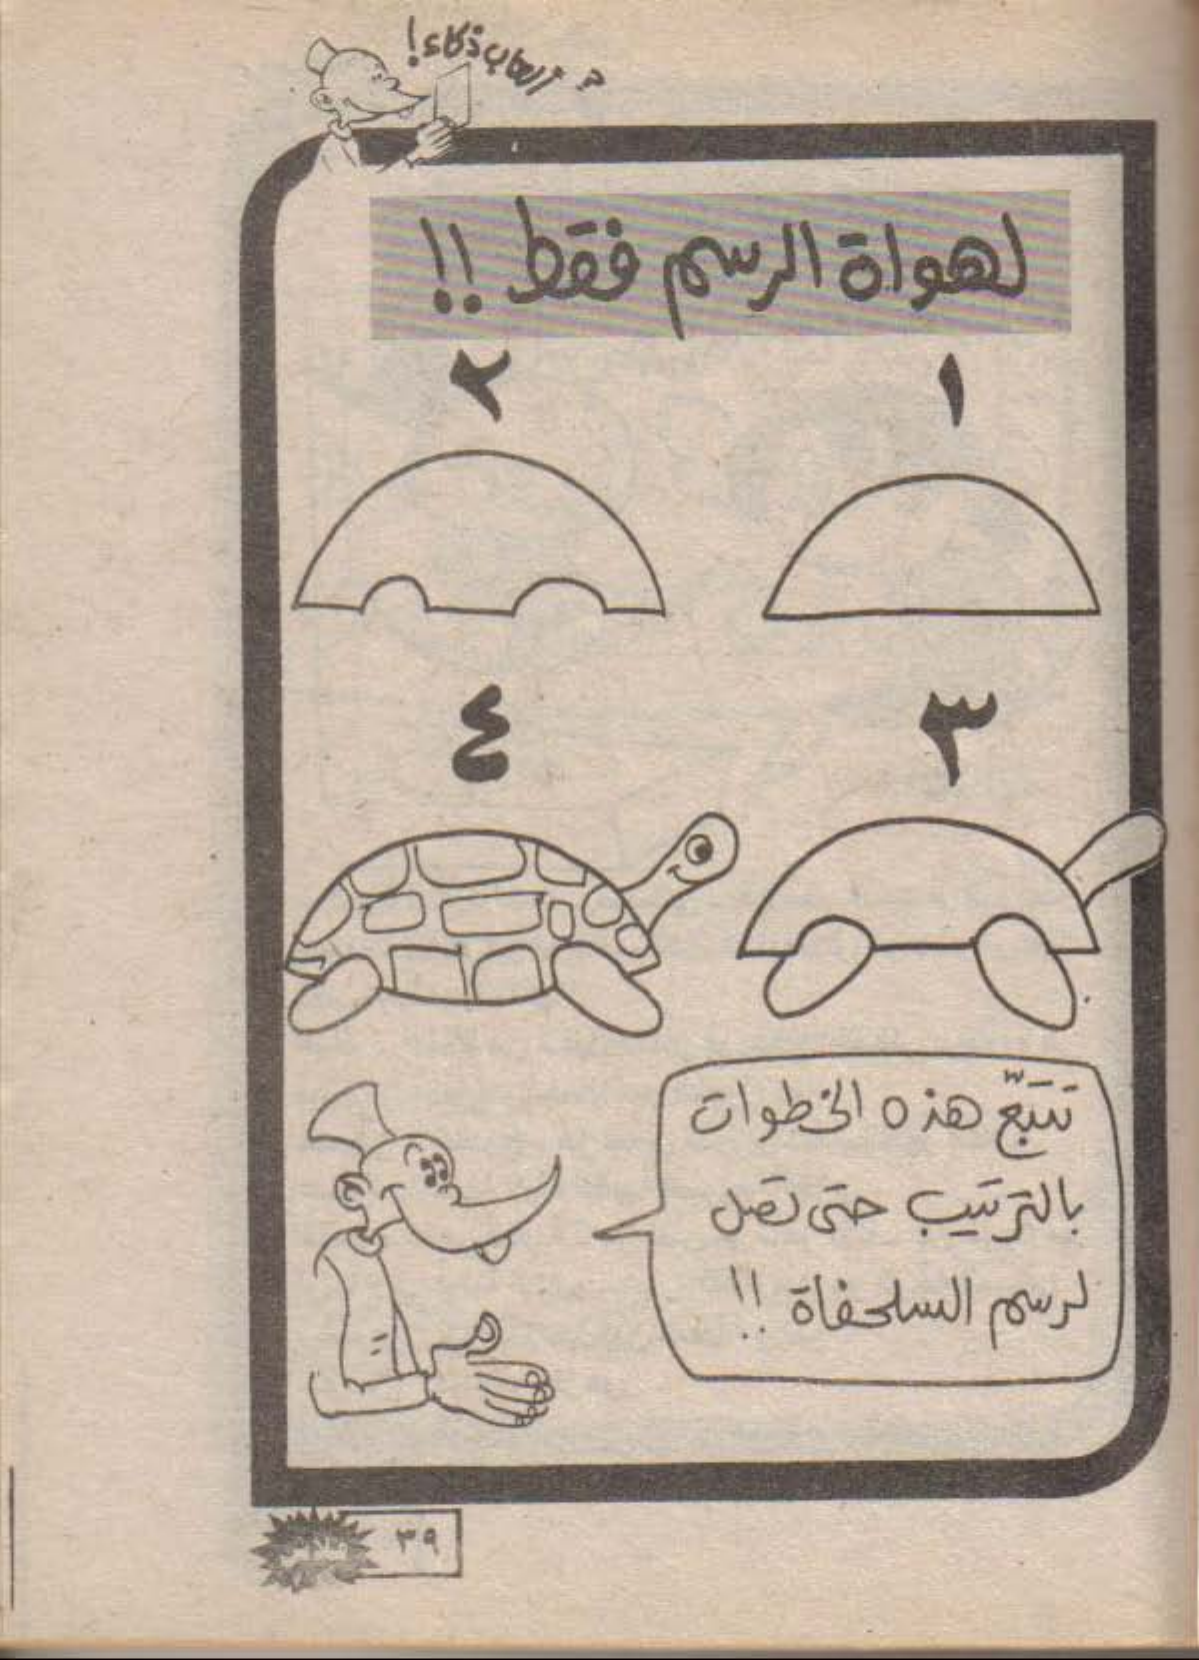 ألعاب ذكاء!
لهواة الرسم فقط !!
١
٢
٣
٤
تتبّع هذه الخطوات
بالترتيب حتى تصل
لرسم السلحفاة !!
٣٩